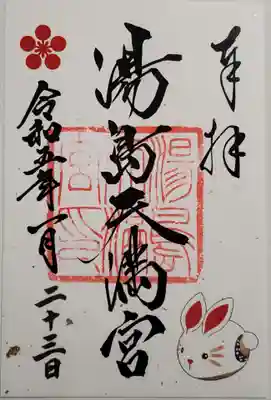 奉拝
湯島天満宮
令和五年一月二十三日